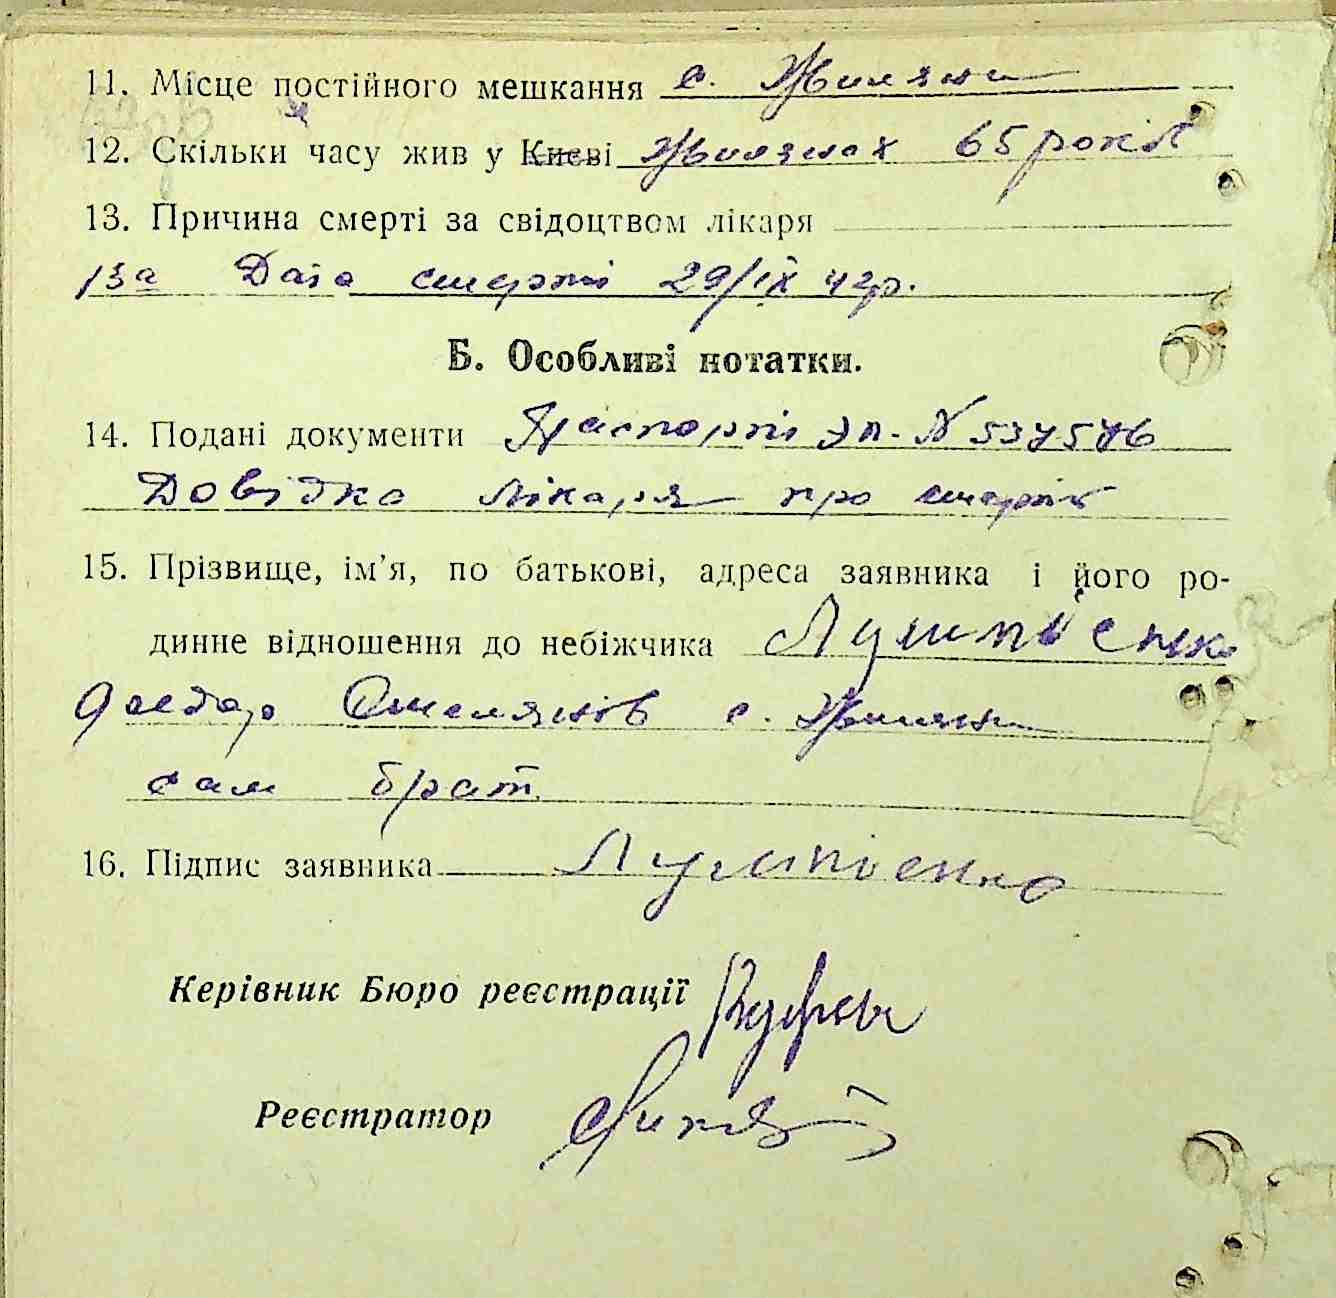 11. Місце постійного мешкання с. Жиляни
12. Скільки часу жив у Києві Жилянах 65 років
13. Причина смерті за свідоцтвом лікаря
13а Дата смерті 29/IX 42р.
Б. Особливі нотатки.
14. Подані документи Паспорт зп. N 537576
Довідка лікаря про смерть
15. Прізвище, ім’я, по батькові, адреса заявника і його ро-
динне відношення до небіжчика
Федор Омелянов с. Жиляни
сам брат
16. Підпис заявника
Керівник Бюро реєстрації
Реєстратор